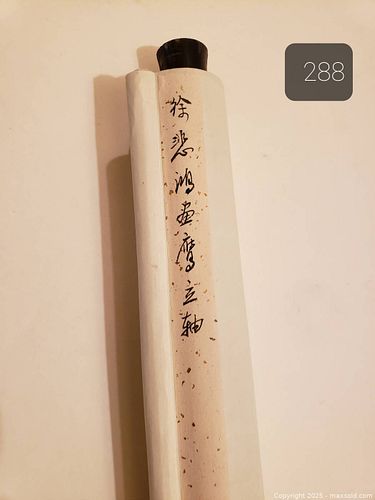 288
徐悲鸿画鹰立轴
Copyright 2025 - maxsold.com